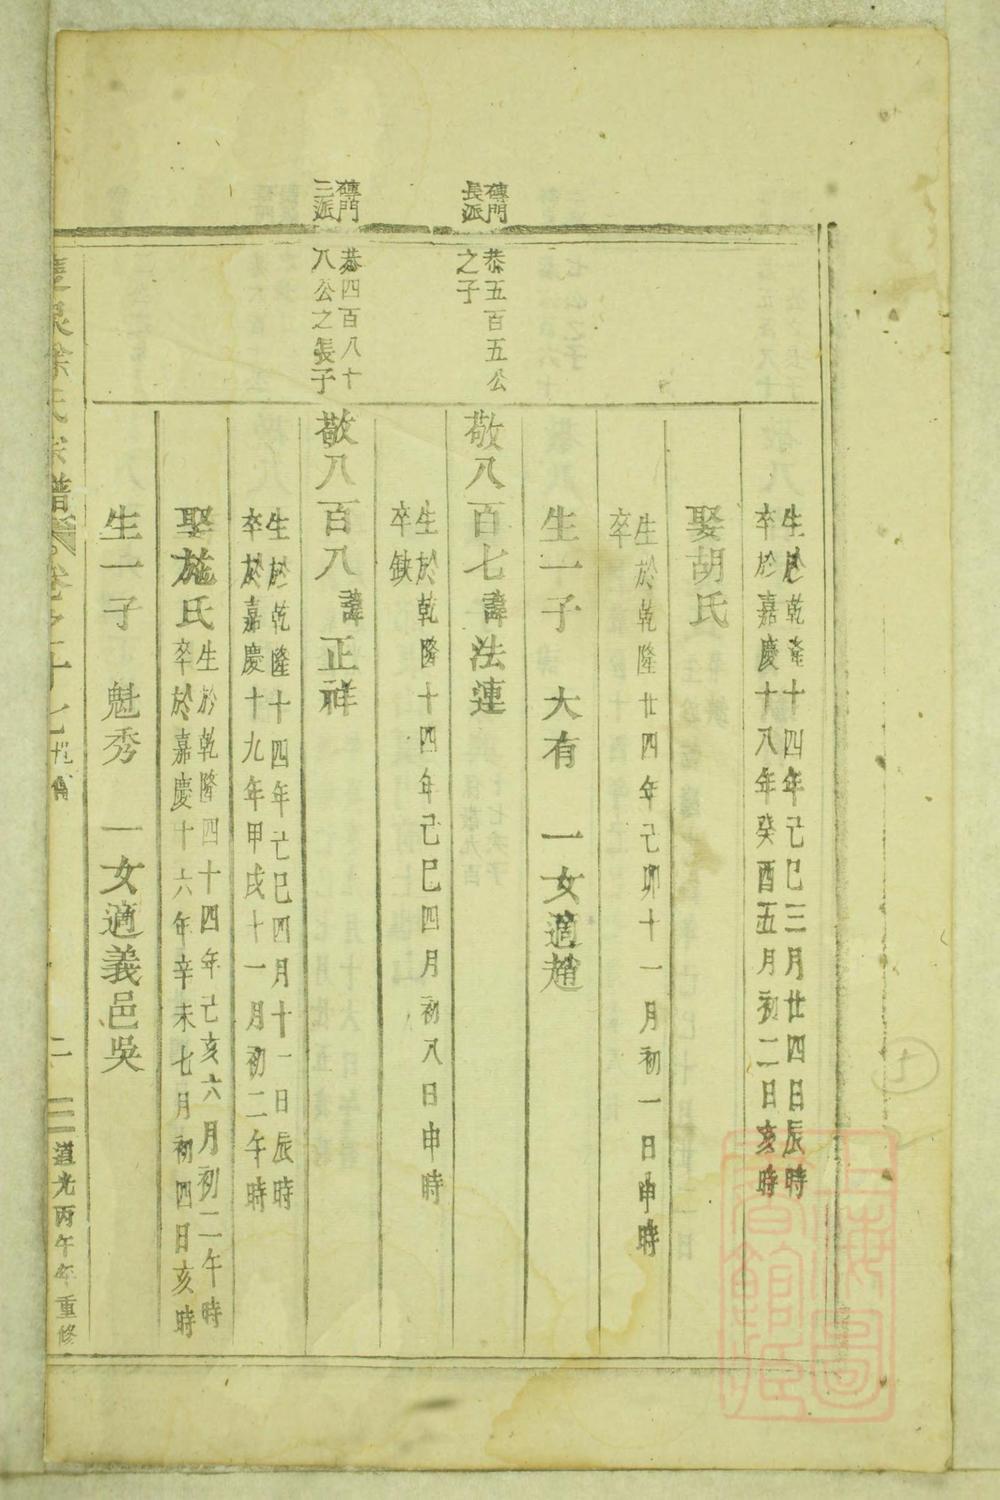 生於乾隆十四年己巳三月廿四日辰時
卒於嘉慶十八年癸酉五月初二日亥時
娶胡氏
生於乾隆廿四年己卯十一月初一日申時
卒
生一子 大有 一女適趙
磚門
長派
恭五百五公
之子
敬八百七諱法連
生於乾隆十四年己巳四月初八日申時
卒缺
磚門
三派
恭四百八十
八公之長子
敬八百八諱正祥
生於乾隆十四年己巳四月十一日辰時
卒於嘉慶十九年甲戌十一月初二午時
娶施氏
生於乾隆四十四年己亥六月初二午時
卒於嘉慶十六年辛未七月初四日亥時
生一子 魁秀 一女適義邑吳
徐氏宗譜
道光丙午年重修
上海圖書館藏